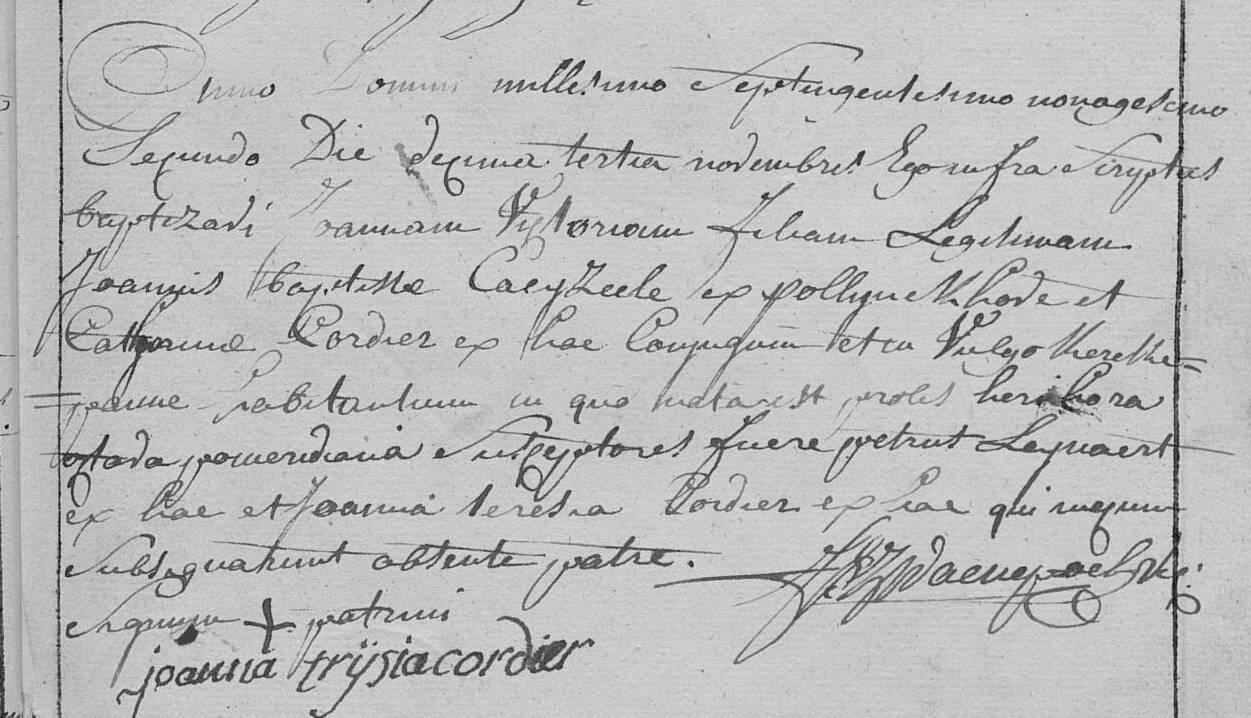 Anno Domini millesimo septingentesimo nonagesimo
Secundo Die decima tertia novembris Ego infra Scryptus
baptizavi Joannam Victoriam filiam Legitimam
Joannis baptistae Caeyzeele ex pollynckhove et
Catharinae Cordier ex hac Conjugum et in Vulgo
= panne habitantium in quo nata est proles heri hora
octava pomeridiana Susceptores fuere petrus Leynaert
ex hac et Joanna teresia Cordier ex hac qui mecum
subsignarunt absente patre.
Signum + patrini
joanna trÿsia cordier